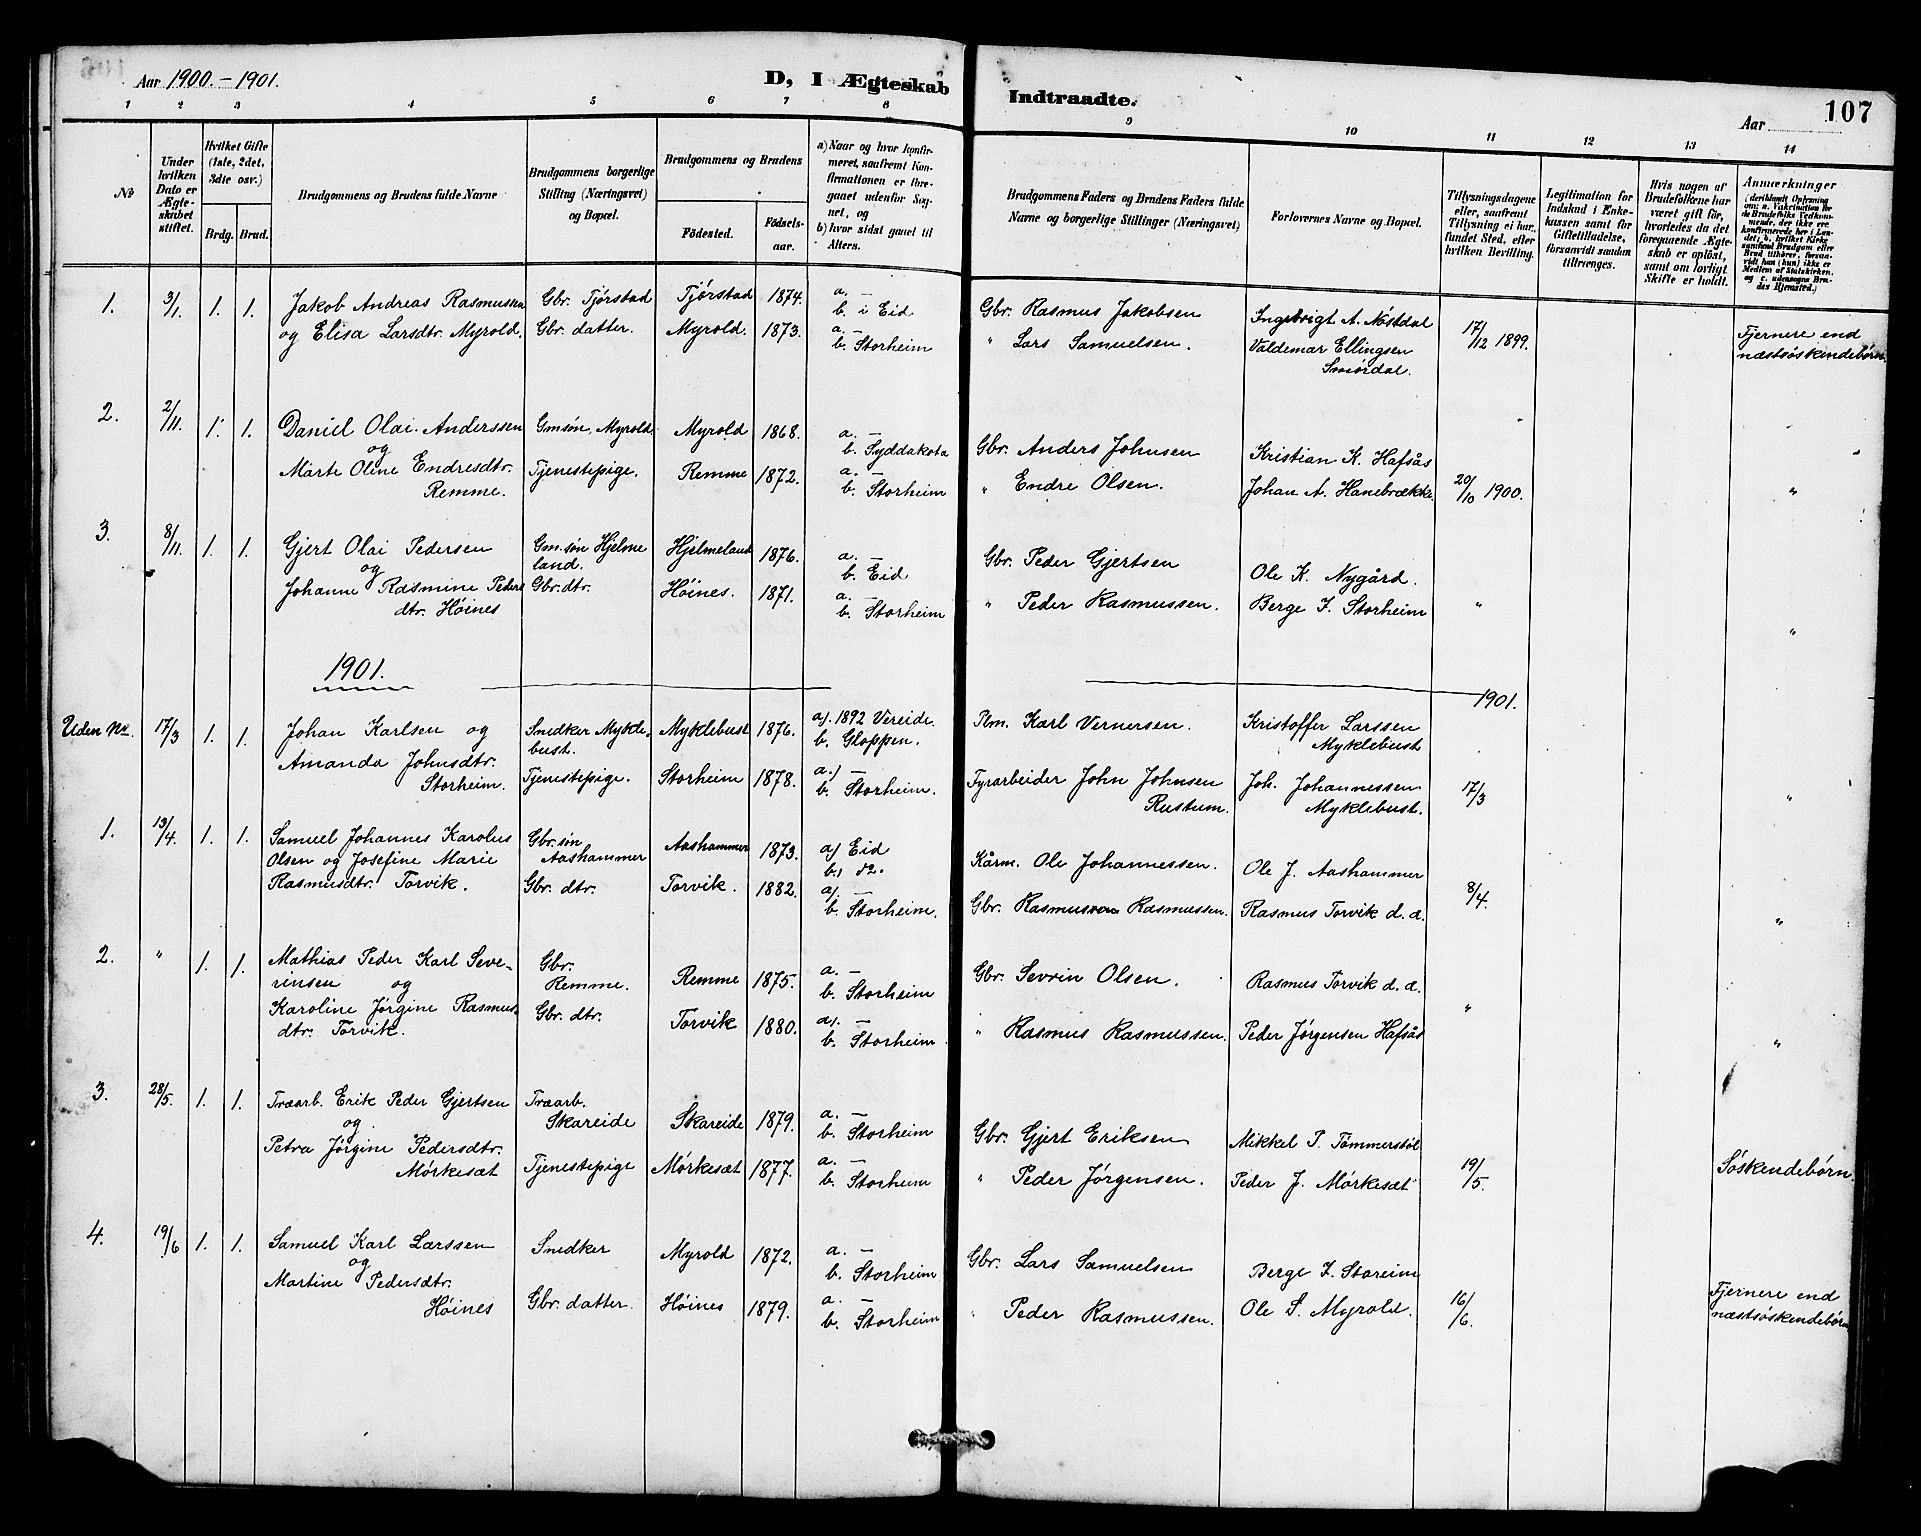 Aar 1900.-1901.
D, I Ægteskab
Indtraadte.
Aar
107
1 2 3 4 5 6 7 8 9 10 11 12 13 14
No
Under hvilken Dato er Ægteskabet stiftet.
Hvilket Gifte (1ste, 2det, 3die osv.)
Brdg. Brud.
Brudgommens og Brudens fulde Navne
Brudgommens borgerlige Stilling (Næringsvei) og Bopæl.
Brudgommens og Brudens
Födested.
Födselsaar.
a) Naar og hvor konfirmeret, saafremt Konfirmationen er foregaaet udenfor Sognet, og
b) hvor sidst gaaet til Alters.
Brudgommens Faders og Brudens Faders fulde Navne og borgerlige Stillinger (Næringsvei)
Forlovernes Navne og Bopæl.
Tillysningsdagene eller, saafremt Tillysning ei har fundet Sted, efter hvilken Bevilling.
Legitimation for Indskud i Enkekassen samt for Giftetilladelse, forsaavidt saadan tiltrænges.
Hvis nogen af Brudefolkene har været gift før, hvorledes da det foregaaende Ægteskab er oplöst, samt om lovligt Skifte er holdt.
Anmærkninger (deriblandt Oplysning om: a. Vaccination for de Brudefolks Vedkommende, der ikke ere konfirmerede her i Landet; b. hvilket Kirkesamfund Brudgom eller Brud tilhører, forsaavidt han (hun) ikke er Medlem af Statskirken, og c. udensogns Brudes Hjemsted.)
1. 3/1. 1. 1. Jakob Andreas Rasmussen Gbr. Tjørstad Tjørstad 1874. a. — b. i Eid Gbr. Rasmus Jakobsen Ingebrigt A. Nøstdal 17/12 1899. Fjernere end
og Elisa Larsdtr. Myrold. Gbr. datter. Myrold. 1873. a. — b. Storheim " Lars Samuelsen. Valdemar Ellingsen Smørdal. næstsøskendebørn.
2. 2/11. 1. 1. Daniel Olai Anderssen Gmsøn, Myrold. Myrold 1868. a. — b. Syddakota Gbr. Anders Johnsen Kristian K. Hafsås
og
Marte Oline Endresdtr. Tjenestepige. Remme 1872. a. — b. Storheim " Endre Olsen. Johan A. Hanebrække. 20/10 1900. "
Remme.
3. 8/11. 1. 1. Gjert Olai Pedersen Gm.søn Hjelmeland. Hjelmeland 1876. a. — b. Eid Gbr. Peder Gjertsen Ole K. Nygård.
og
Johanne Rasmine Peders Gbr. dtr. Høines. 1871. a. — b. Storheim " Peder Rasmussen. Berge J. Storheim " "
dtr. Høines
1901.
1901.
Uden No. 17/3 1. 1. Johan Karlsen og Snedker Myklebust. Myklebust 1876. a). 1892 Vereide. b. Gloppen. Plm. Karl Vernersen. Kristoffer Larssen Myklebust
Amanda Johnsdtr. Tjenestepige. Storheim 1878. a.) — b. Storheim. Fyrarbeider John Johnsen Rustum. Joh. Johannessen Myklebust. 17/3 "
Storheim.
1. 13/4. 1. 1. Samuel Johannes Karolus Gbr. søn Aashammer Aashammer 1873. a) Eid b.) do. Kårm. Ole Johannessen. Ole J. Aashammer
Olsen og Josefine Marie
Rasmusdtr. Torvik. Gbr. dtr. Torvik. 1882. a). — b. Storheim. Gbr. Rasmus Rasmussen. Rasmus Torvik d. æ. 8/4. "
2. " 1. 1. Mathias Peder Karl Seve- Gbr. Remme. Remme 1875. a. — b. Storheim Gbr. Sevrin Olsen. Rasmus Torvik d. æ.
rinsen og
Karoline Jørgine Rasmus- Gbr. dtr. Torvik 1880. a). — b. Storheim " Rasmus Rasmussen. Peder Jørgensen Hafsås " "
dtr. Torvik.
3. 28/5. 1. 1. Træarb. Erik Peder Gjertsen Træarb. Skareide Skareide 1879. a. — b. Storheim Gbr. Gjert Eriksen Mikkel P. Tømmerstøl
og
Petra Jørgine Pedersdtr. Tjenestepige Mørkesæt 1877. a. — b. Storheim " Peder Jørgensen. Peder J. Mørkesæt 19/5. Søskendebørn.
Mørkesæt
4. 19/6 1. 1. Samuel Karl Larssen Snedker Myrold 1872. a. — b. Storheim Gbr. Lars Samuelsen Berge J. Storeim
og
Martine Pedersdtr. Gbr. datter. Høines 1879. a. — b. Storheim " Peder Rasmussen. Ole S. Myrold. 16/6. Fjernere end
Høines næstsøskendebørn